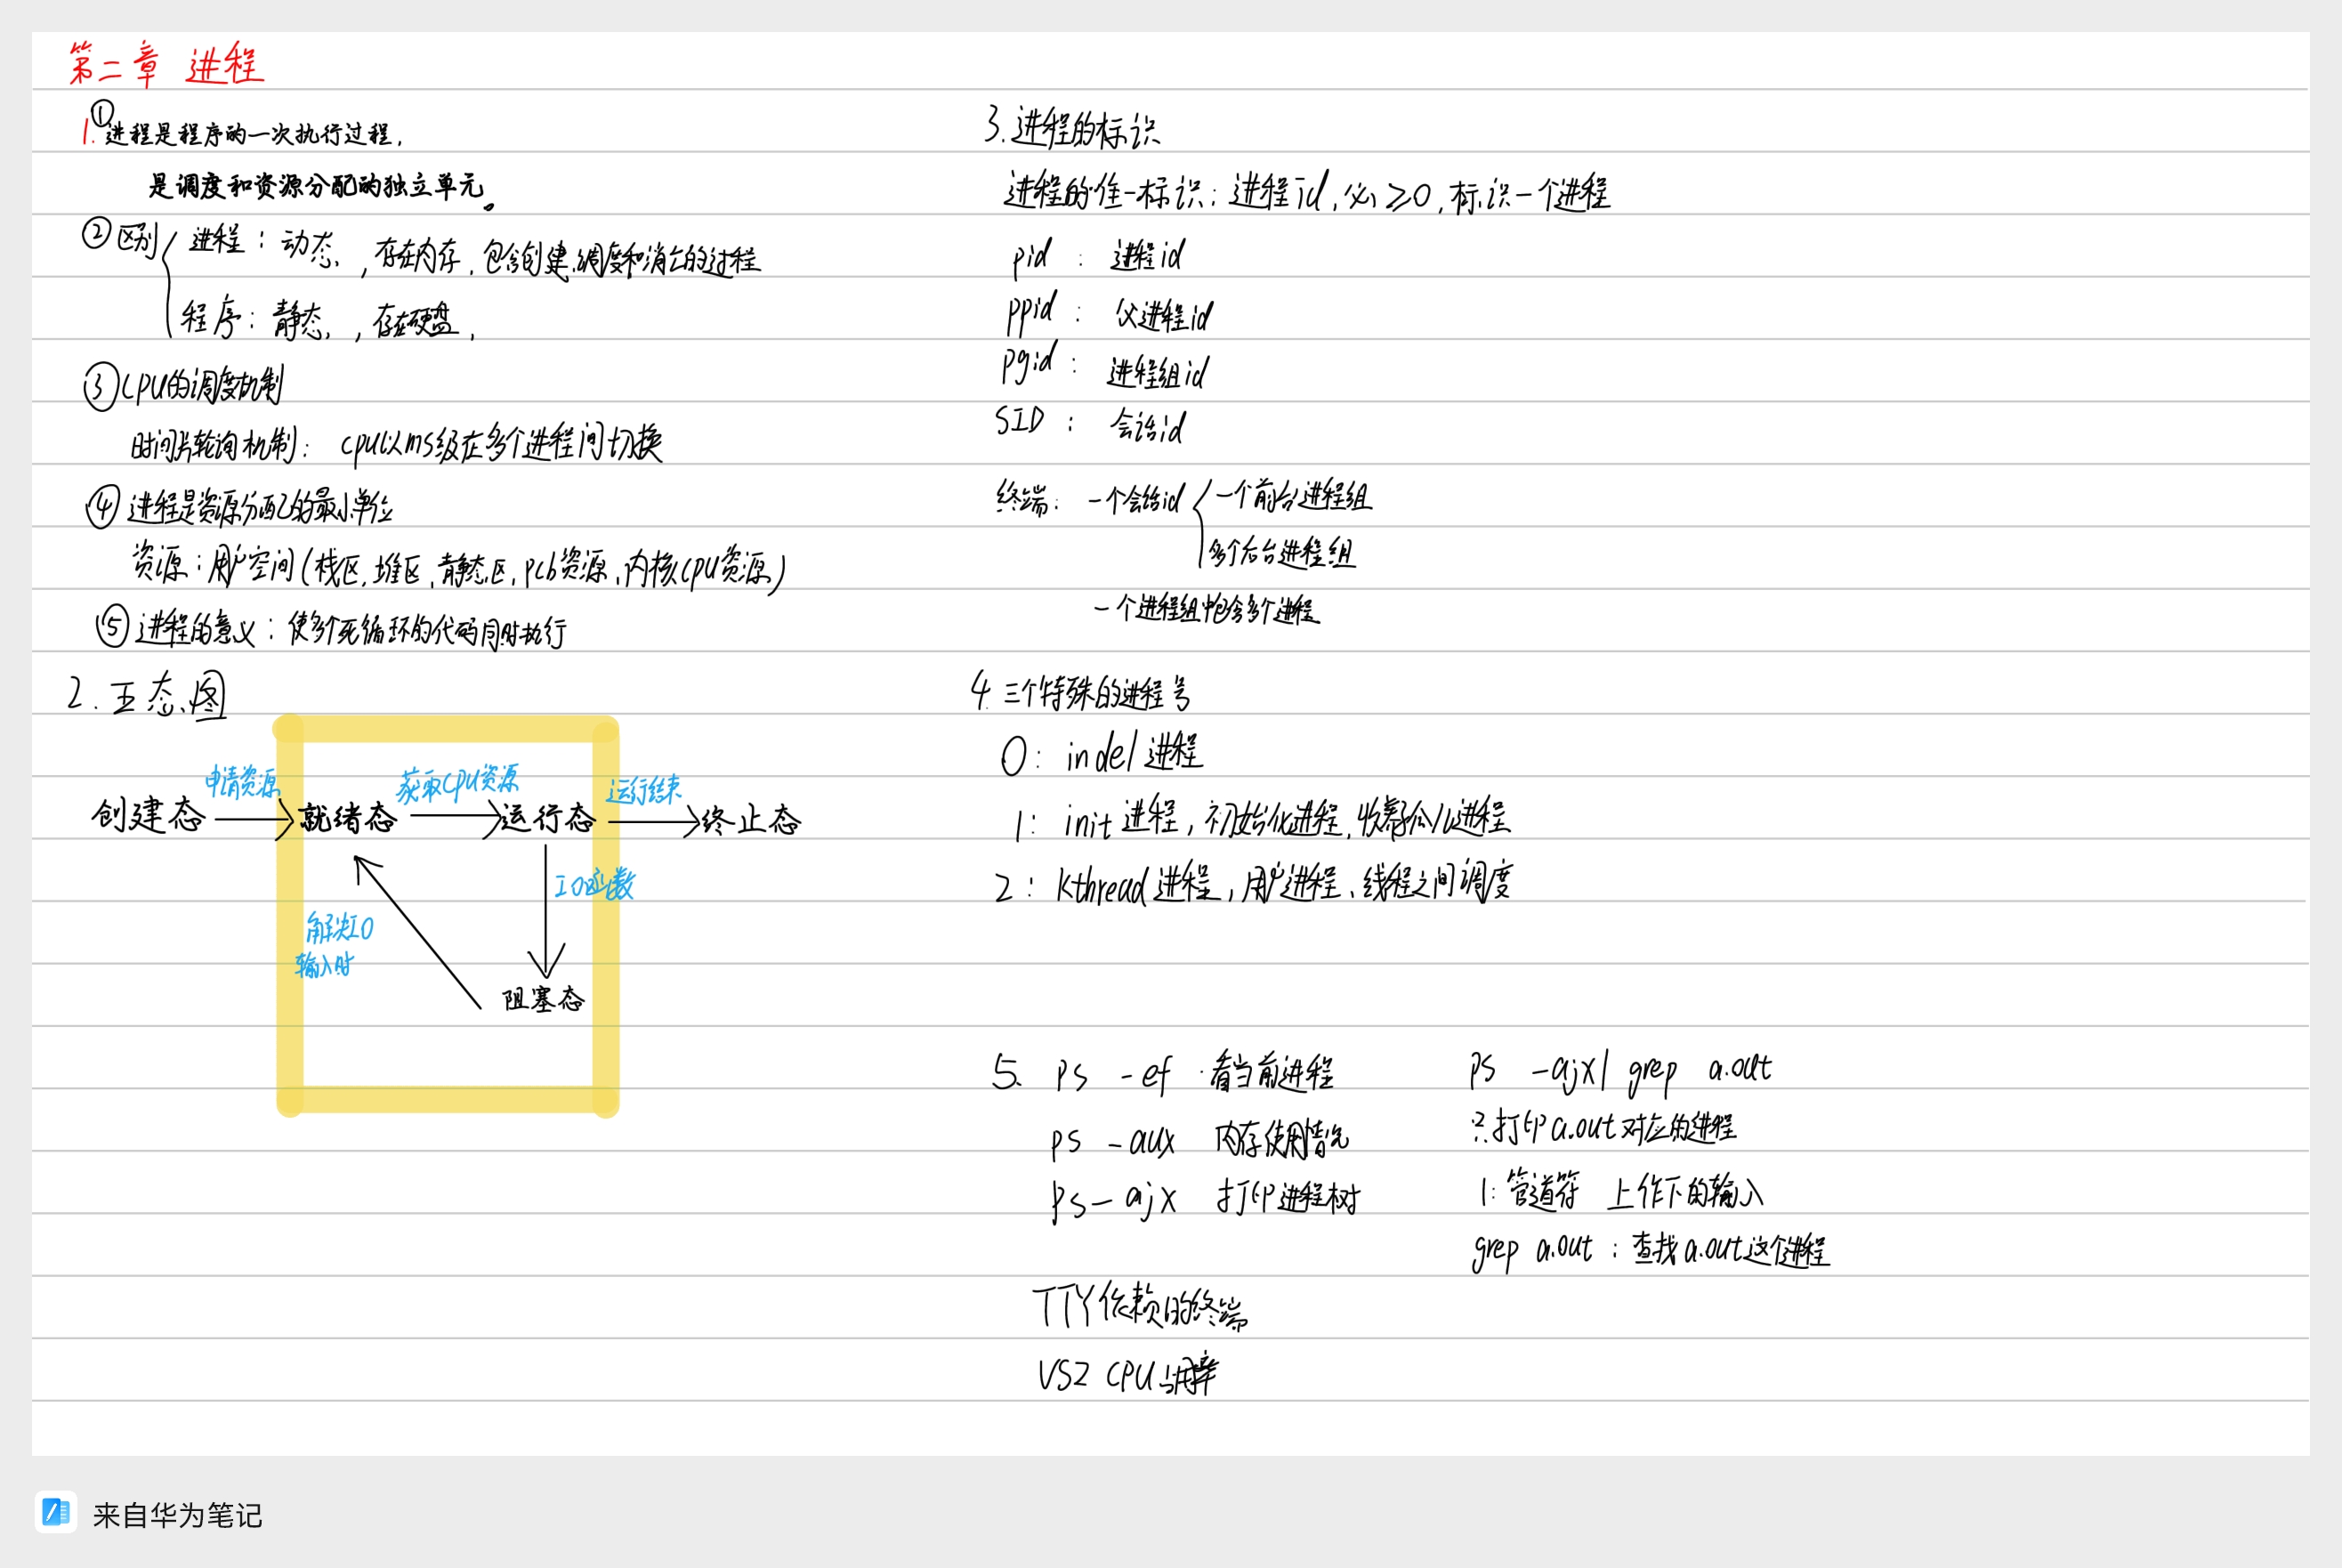 第二章 进程
1. ①进程是程序的一次执行过程,
是调度和资源分配的独立单元。
②区别 进程：动态,存在内存,包含创建、调度和消亡的过程
程序：静态,存在硬盘,
③CPU的调度机制
时间片轮询机制：cpu以ms级在多个进程间切换
④进程是资源分配的最小单位
资源：用户空间(栈区,堆区,静态区,pcb资源,内核cpu资源)
⑤进程的意义：使多个死循环的代码同时执行
2.五态图
申请资源 获取CPU资源 运行结束
创建态 就绪态 运行态 终止态
IO函数
解决IO
输入时
阻塞态
3.进程的标识
进程的唯一标识：进程id,必≥0,标识一个进程
pid：进程id
ppid：父进程id
pgid：进程组id
SID：会话id
终端：一个会话id 一个前台进程组
多个后台进程组
一个进程组中包含多个进程
4.三个特殊的进程号
0：indel进程
1：init进程,初始化进程,收养孤儿进程
2：kthread进程,用户进程、线程之间调度
5. ps -ef 看当前进程
ps -aux 内存使用情况
ps -ajx 打印进程树
ps -ajx| grep a.out
只打印a.out对应的进程
|:管道符 上作下的输入
grep a.out：查找a.out这个进程
TTY依赖的终端
VSZ CPU占用率
来自华为笔记